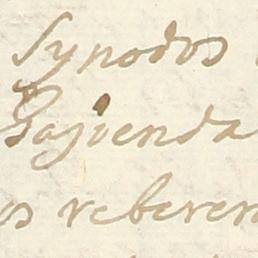 Synodos
Sagienda
os reberen